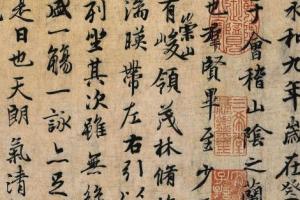 和九年歲在癸
于會稽山陰之蘭
也羣賢畢至少
有崇山峻領茂林脩
湍暎帶左右引以
列坐其次雖無絲
盛一觴一詠亦足
是日也天朗氣清